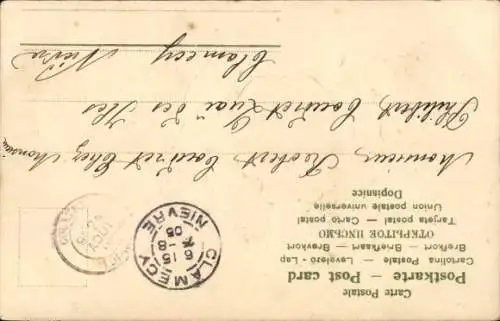 Carte Postale
Postkarte — Post card
Cartolina Postale — Levelező - Lap
Brefkort — Briefkaart — Brevkort
ОТКРЫТОЕ ПИСЬМО
Tarjeta postal — Carto postal
Union postale universelle
Dopisnice
Monsieur Robert Couderet Chez Monsieur
Philibert Couderet Quai des Iles
Clamecy Nièvre
CLAMECY
6 15
8
05
NIEVRE